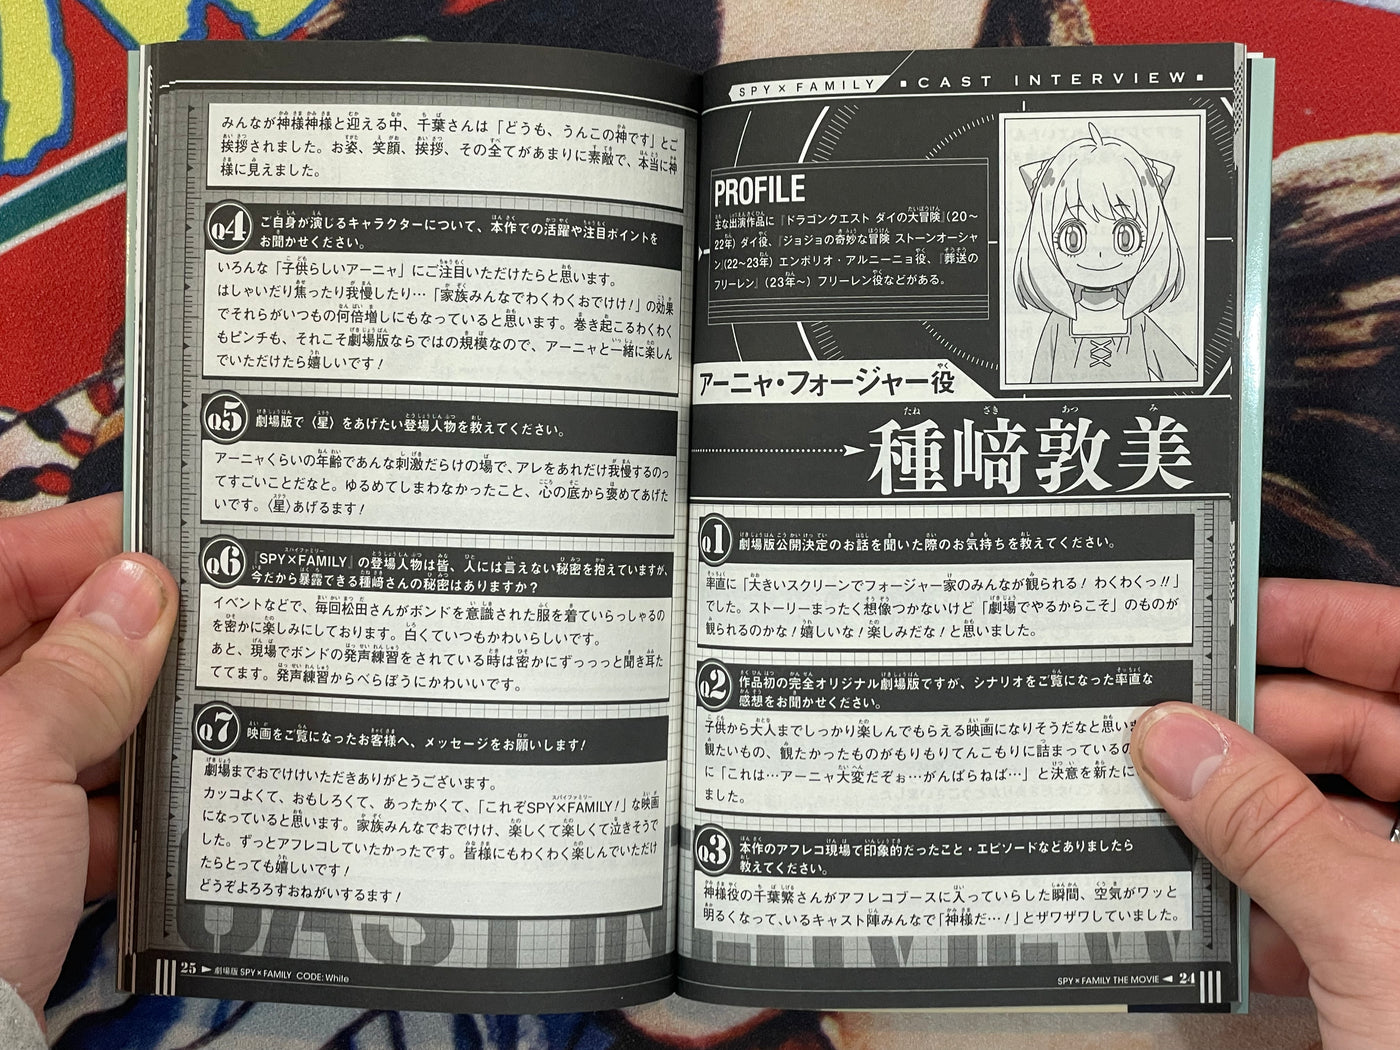 SPY×FAMILY
CAST INTERVIEW
PROFILE
主な出演作品に『ドラゴンクエスト ダイの大冒険』(20〜
22年)ダイ役、『ジョジョの奇妙な冒険 ストーンオーシャ
ン』(22〜23年)エンポリオ・アルニーニョ役、『葬送の
フリーレン』(23年〜)フリーレン役などがある。
アーニャ・フォージャー役
種﨑敦美
Q1 劇場版公開決定のお話を聞いた際のお気持ちを教えてください。
率直に「大きいスクリーンでフォージャー家のみんなが観られる！わくわくっ!!」
でした。ストーリーまったく想像つかないけど「劇場でやるからこそ」のものが
観られるのかな！嬉しいな！楽しみだな！と思いました。
Q2 作品初の完全オリジナル劇場版ですが、シナリオをご覧になった率直な
感想をお聞かせください。
子供から大人までしっかり楽しんでもらえる映画になりそうだなと思い
観たいもの、観たかったものがもりもりてんこもりに詰まっているの
に「これは…アーニャ大変だぞぉ…がんばらねば…」と決意を新たに
ました。
Q3 本作のアフレコ現場で印象的だったこと・エピソードなどありましたら
教えてください。
神様役の千葉繁さんがアフレコブースに入っていらした瞬間、空気がワッと
明るくなって、いるキャスト陣みんなで「神様だ…！」とザワザワしていました。
SPY×FAMILY THE MOVIE ◀ 24
みんなが神様神様と迎える中、千葉さんは「どうも、うんこの神です」とご
挨拶されました。お姿、笑顔、挨拶、その全てがあまりに素敵で、本当に神
様に見えました。
Q4 ご自身が演じるキャラクターについて、本作での活躍や注目ポイントを
お聞かせください。
いろんな「子供らしいアーニャ」にご注目いただけたらと思います。
はしゃいだり焦ったり我慢したり…「家族みんなでわくわくおでけけ！」の効果
でそれらがいつもの何倍増しにもなっていると思います。巻き起こるわくわく
もピンチも、それこそ劇場版ならではの規模なので、アーニャと一緒に楽しん
でいただけたら嬉しいです！
Q5 劇場版で〈星〉をあげたい登場人物を教えてください。
アーニャくらいの年齢であんな刺激だらけの場で、アレをあれだけ我慢するのっ
てすごいことだなと。ゆるめてしまわなかったこと、心の底から褒めてあげた
いです。〈星〉あげるます！
Q6 『SPY×FAMILY』の登場人物は皆、人には言えない秘密を抱えていますが、
今だから暴露できる種﨑さんの秘密はありますか？
イベントなどで、毎回松田さんがボンドを意識された服を着ていらっしゃるの
を密かに楽しみにしております。白くていつもかわいらしいです。
あと、現場でボンドの発声練習をされている時は密かにずっっっと聞き耳た
ててます。発声練習からべらぼうにかわいいです。
Q7 映画をご覧になったお客様へ、メッセージをお願いします！
劇場までおでけけいただきありがとうございます。
カッコよくて、おもしろくて、あったかくて、「これぞSPY×FAMILY！」な映画
になっていると思います。家族みんなでおでけけ、楽しくて楽しくて泣きそうで
した。ずっとアフレコしていたかったです。皆様にもわくわく楽しんでいただけ
たらとっても嬉しいです！
どうぞよろろすおねがいするます！
25 ▶ 劇場版 SPY×FAMILY CODE: White